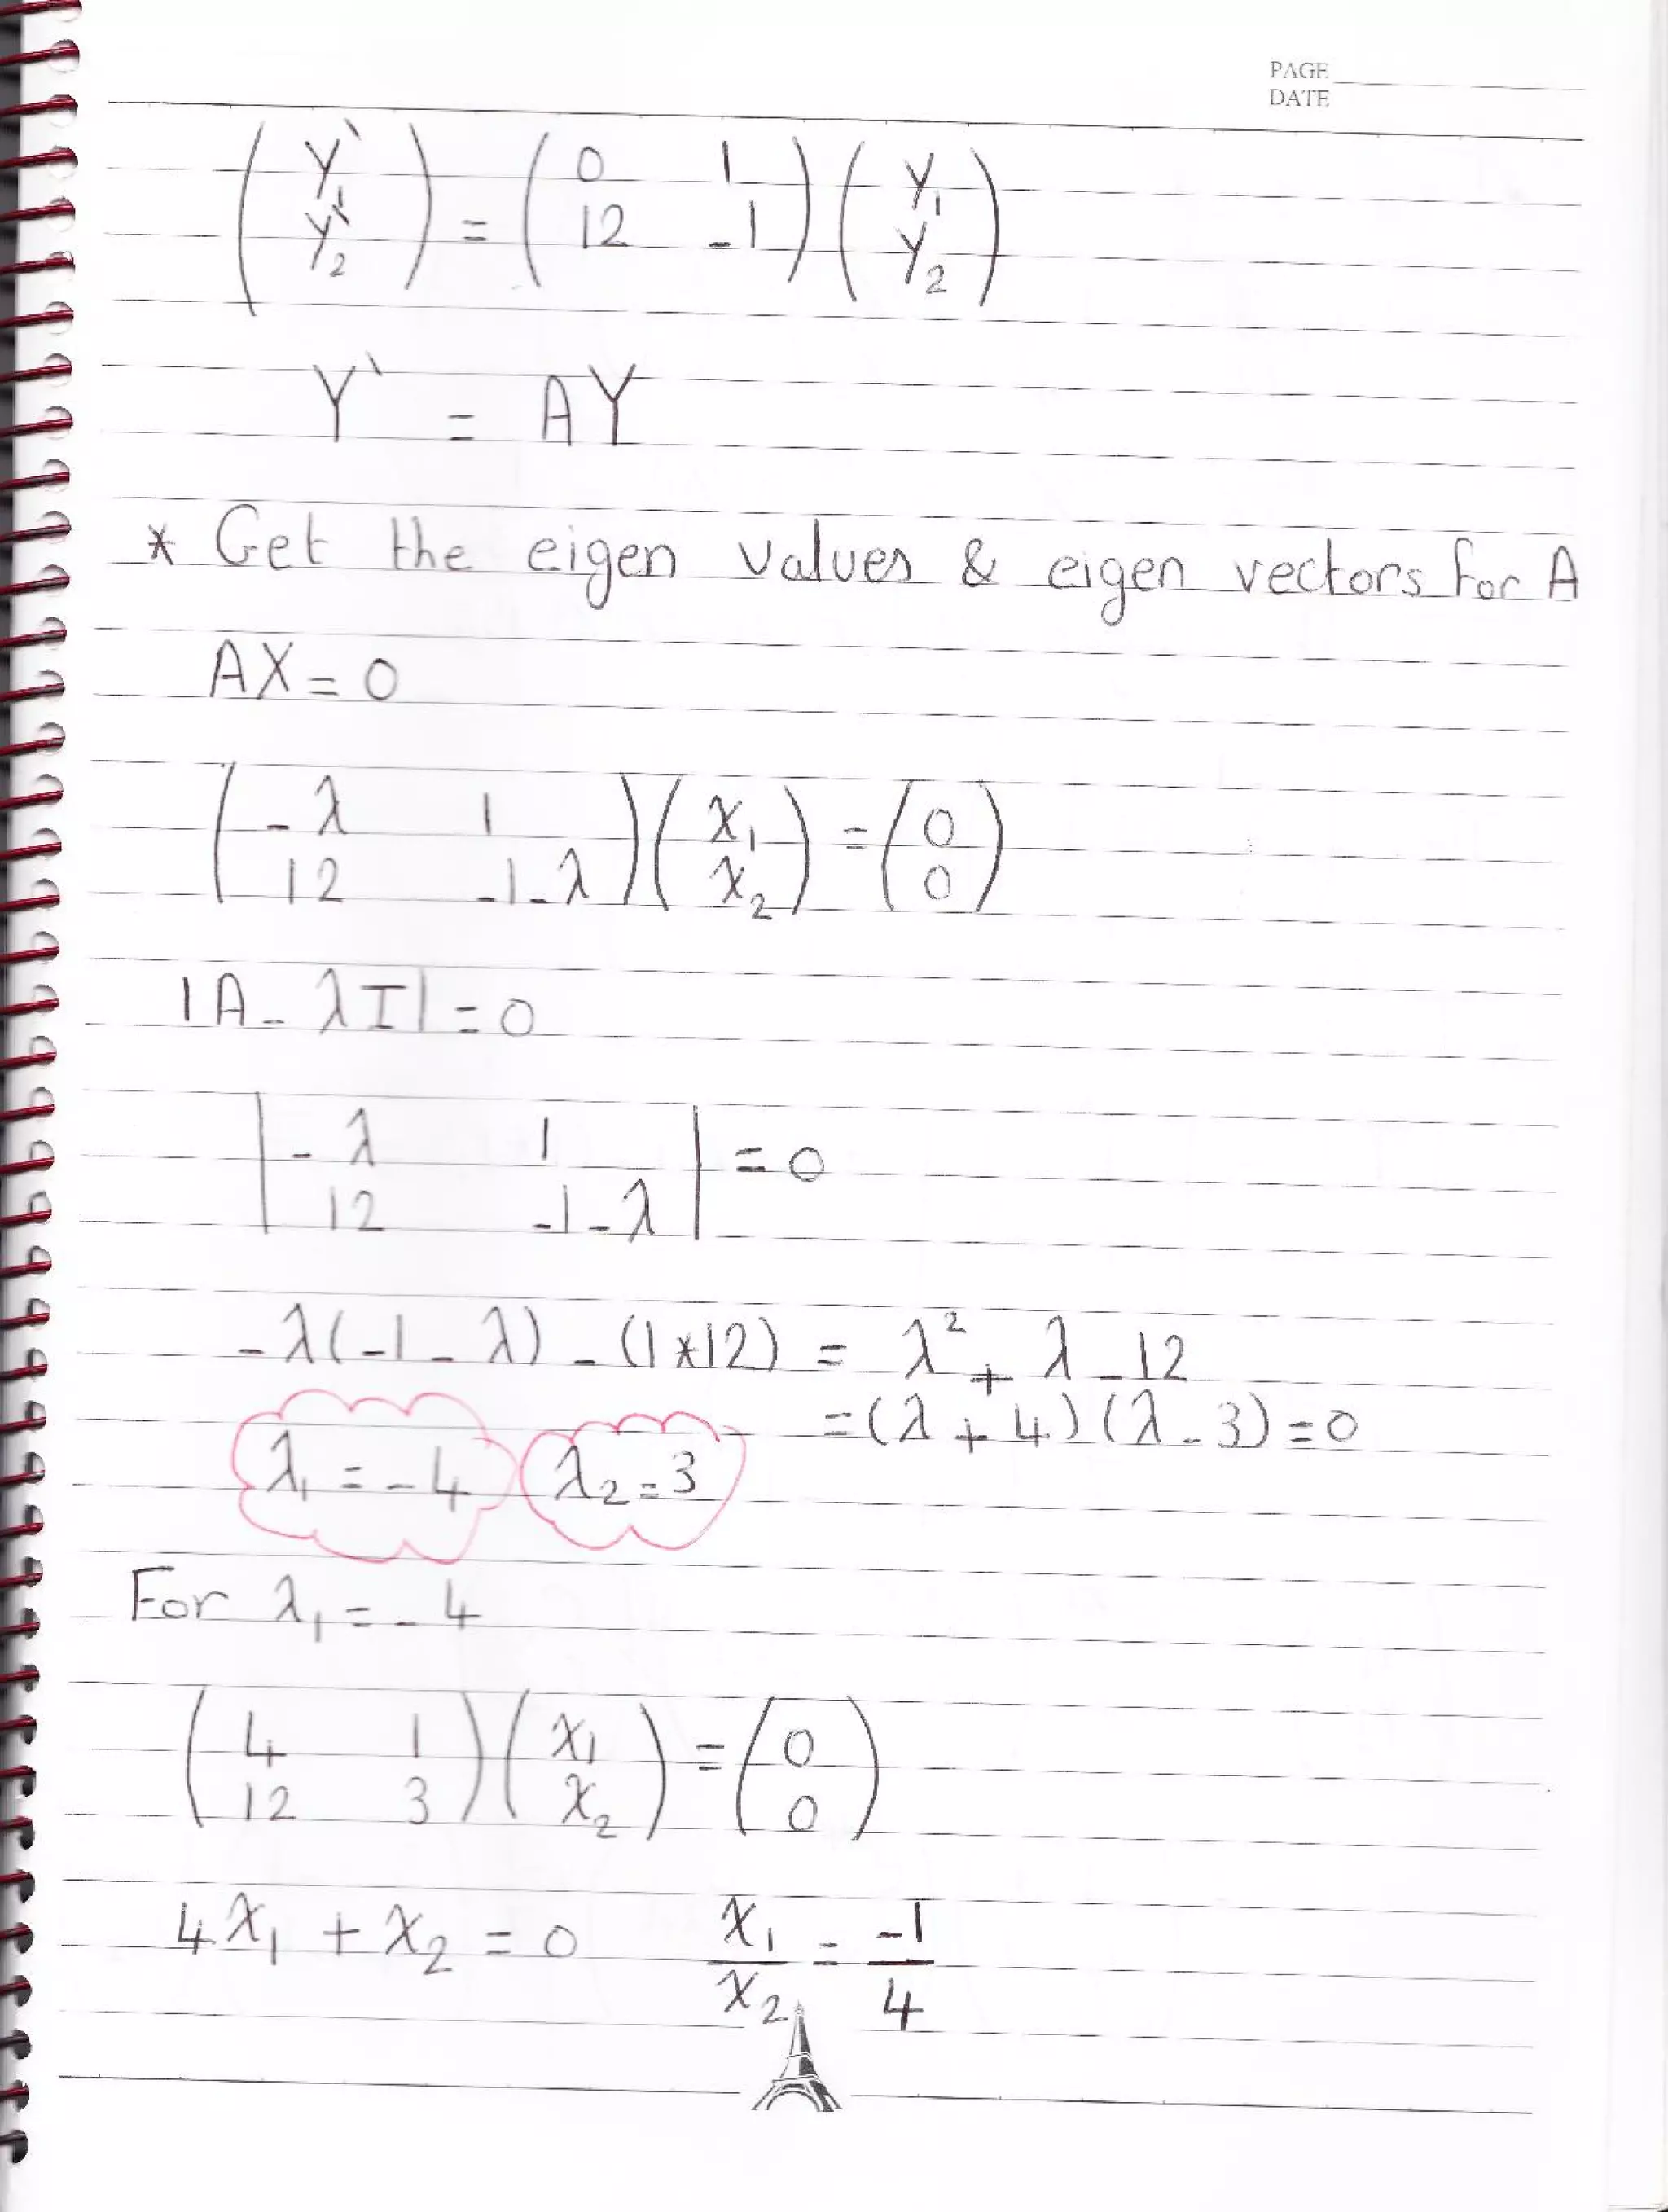 PAGE
DATE
(y₁` y₂`) = (0 1 12 -1) (y₁ y₂)
Y` = AY
* Get the eigen values & eigen vectors for A
AX = 0
(-λ 1 12 -1-λ) (x₁ x₂) = (0 0)
|A - λI| = 0
|-λ 1 12 -1-λ| = 0
-λ(-1-λ) - (1*12) = λ² + λ - 12
= (λ + 4)(λ - 3) = 0
λ₁ = -4 λ₂ = 3
For λ₁ = -4
(4 1 12 3) (x₁ x₂) = (0 0)
4x₁ + x₂ = 0 x₁/x₂ = -1/4